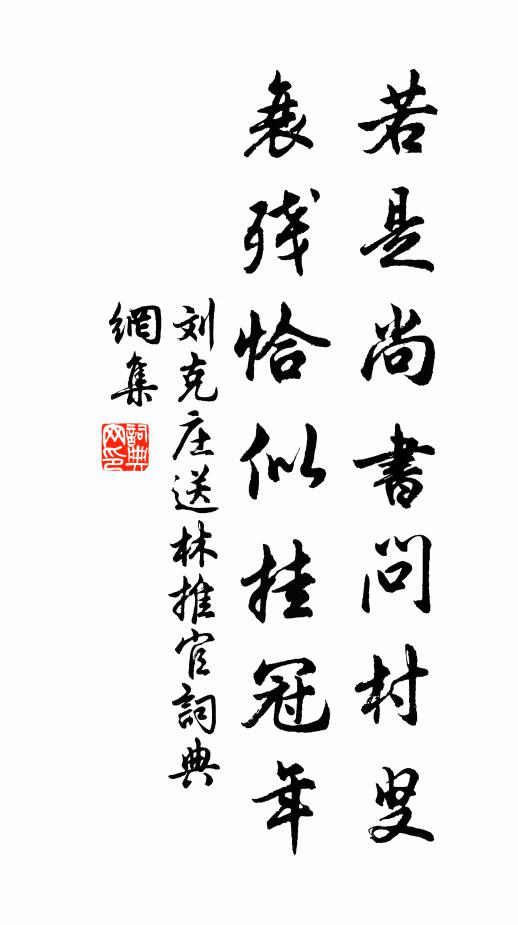 若是尚書問村叟
衰残恰似挂冠年
刘克庄送林推官詞典
網集
詞典网印